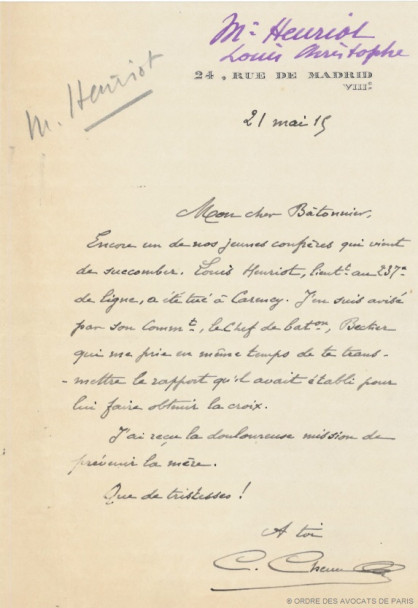 Mᵉ Henriot
Louis Christophe
M. Henriot
24, RUE DE MADRID
VIIIᵉ
21 mai 15
Mon cher Bâtonnier,
Encore un de nos jeunes confrères qui vient
de succomber. Louis Henriot, lieutᵗ au 237ᵉ
de ligne, a été tué à Carency. J'en suis avisé
par son Commᵗ, le Chef de batᵒⁿ,
qui me prie en même temps de te trans-
-mettre le rapport qu'il avait établi pour
lui faire obtenir la croix.
J'ai reçu la douloureuse mission de
prévenir la mère.
Que de tristesses !
A toi
C.
® ORDRE DES AVOCATS DE PARIS